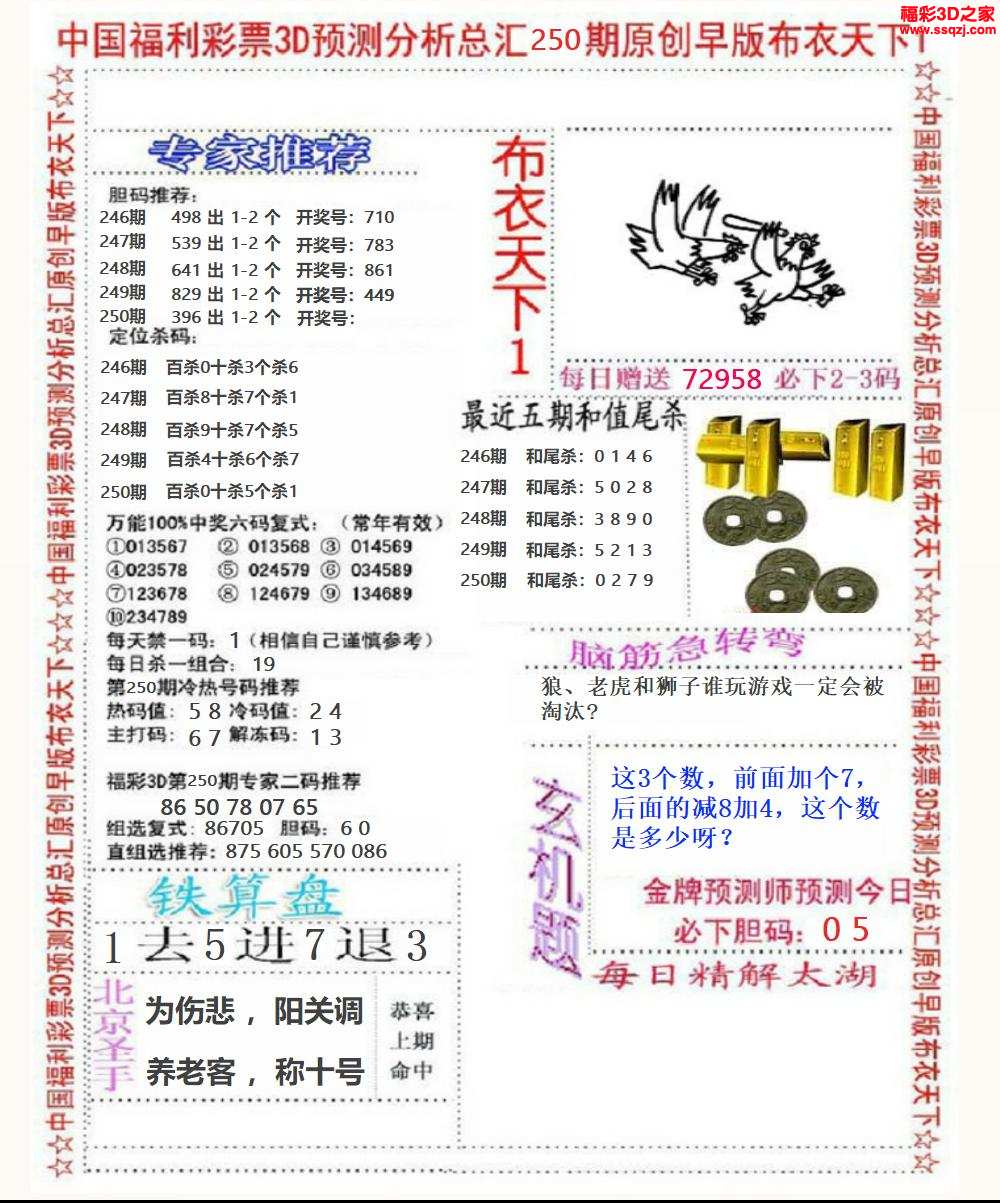 福彩3D之家
www.ssqzj.com
中国福利彩票3D预测分析总汇250期原创早版布衣天下1
☆☆中国福利彩票3D预测分析总汇原创早版布衣天下☆☆中国福利彩票3D预测分析总汇原创早版布衣天下☆☆
专家推荐
胆码推荐：
246期 498 出 1-2 个 开奖号：710
247期 539 出 1-2 个 开奖号：783
248期 641 出 1-2 个 开奖号：861
249期 829 出 1-2 个 开奖号：449
250期 396 出 1-2 个 开奖号：
定位杀码：
246期 百杀0十杀3个杀6
247期 百杀8十杀7个杀1
248期 百杀9十杀7个杀5
249期 百杀4十杀6个杀7
250期 百杀0十杀5个杀1
布衣天下1
每日赠送 72958 必下2-3码
最近五期和值尾杀
246期 和尾杀：0 1 4 6
247期 和尾杀：5 0 2 8
248期 和尾杀：3 8 9 0
249期 和尾杀：5 2 1 3
250期 和尾杀：0 2 7 9
万能100%中奖六码复式：（常年有效）
①013567 ② 013568 ③ 014569
④023578 ⑤ 024579 ⑥ 034589
⑦123678 ⑧ 124679 ⑨ 134689
⑩234789
每天禁一码：1（相信自己谨慎参考）
每日杀一组合： 19
第250期冷热号码推荐
热码值： 5 8 冷码值： 2 4
主打码： 6 7 解冻码： 1 3
福彩3D第250期专家二码推荐
86 50 78 07 65
组选复式：86705 胆码：6 0
直组选推荐：875 605 570 086
脑筋急转弯
狼、老虎和狮子谁玩游戏一定会被
淘汰？
玄机题
这3个数，前面加个7，
后面的减8加4，这个数
是多少呀？
金牌预测师预测今日
必下胆码： 0 5
每日精解太湖
铁算盘
1去5进7退3
北京圣手
为伤悲 ，阳关调
养老客 ，称十号
恭喜
上期
命中
☆☆中国福利彩票3D预测分析总汇原创早版布衣天下☆☆中国福利彩票3D预测分析总汇原创早版布衣天下☆☆